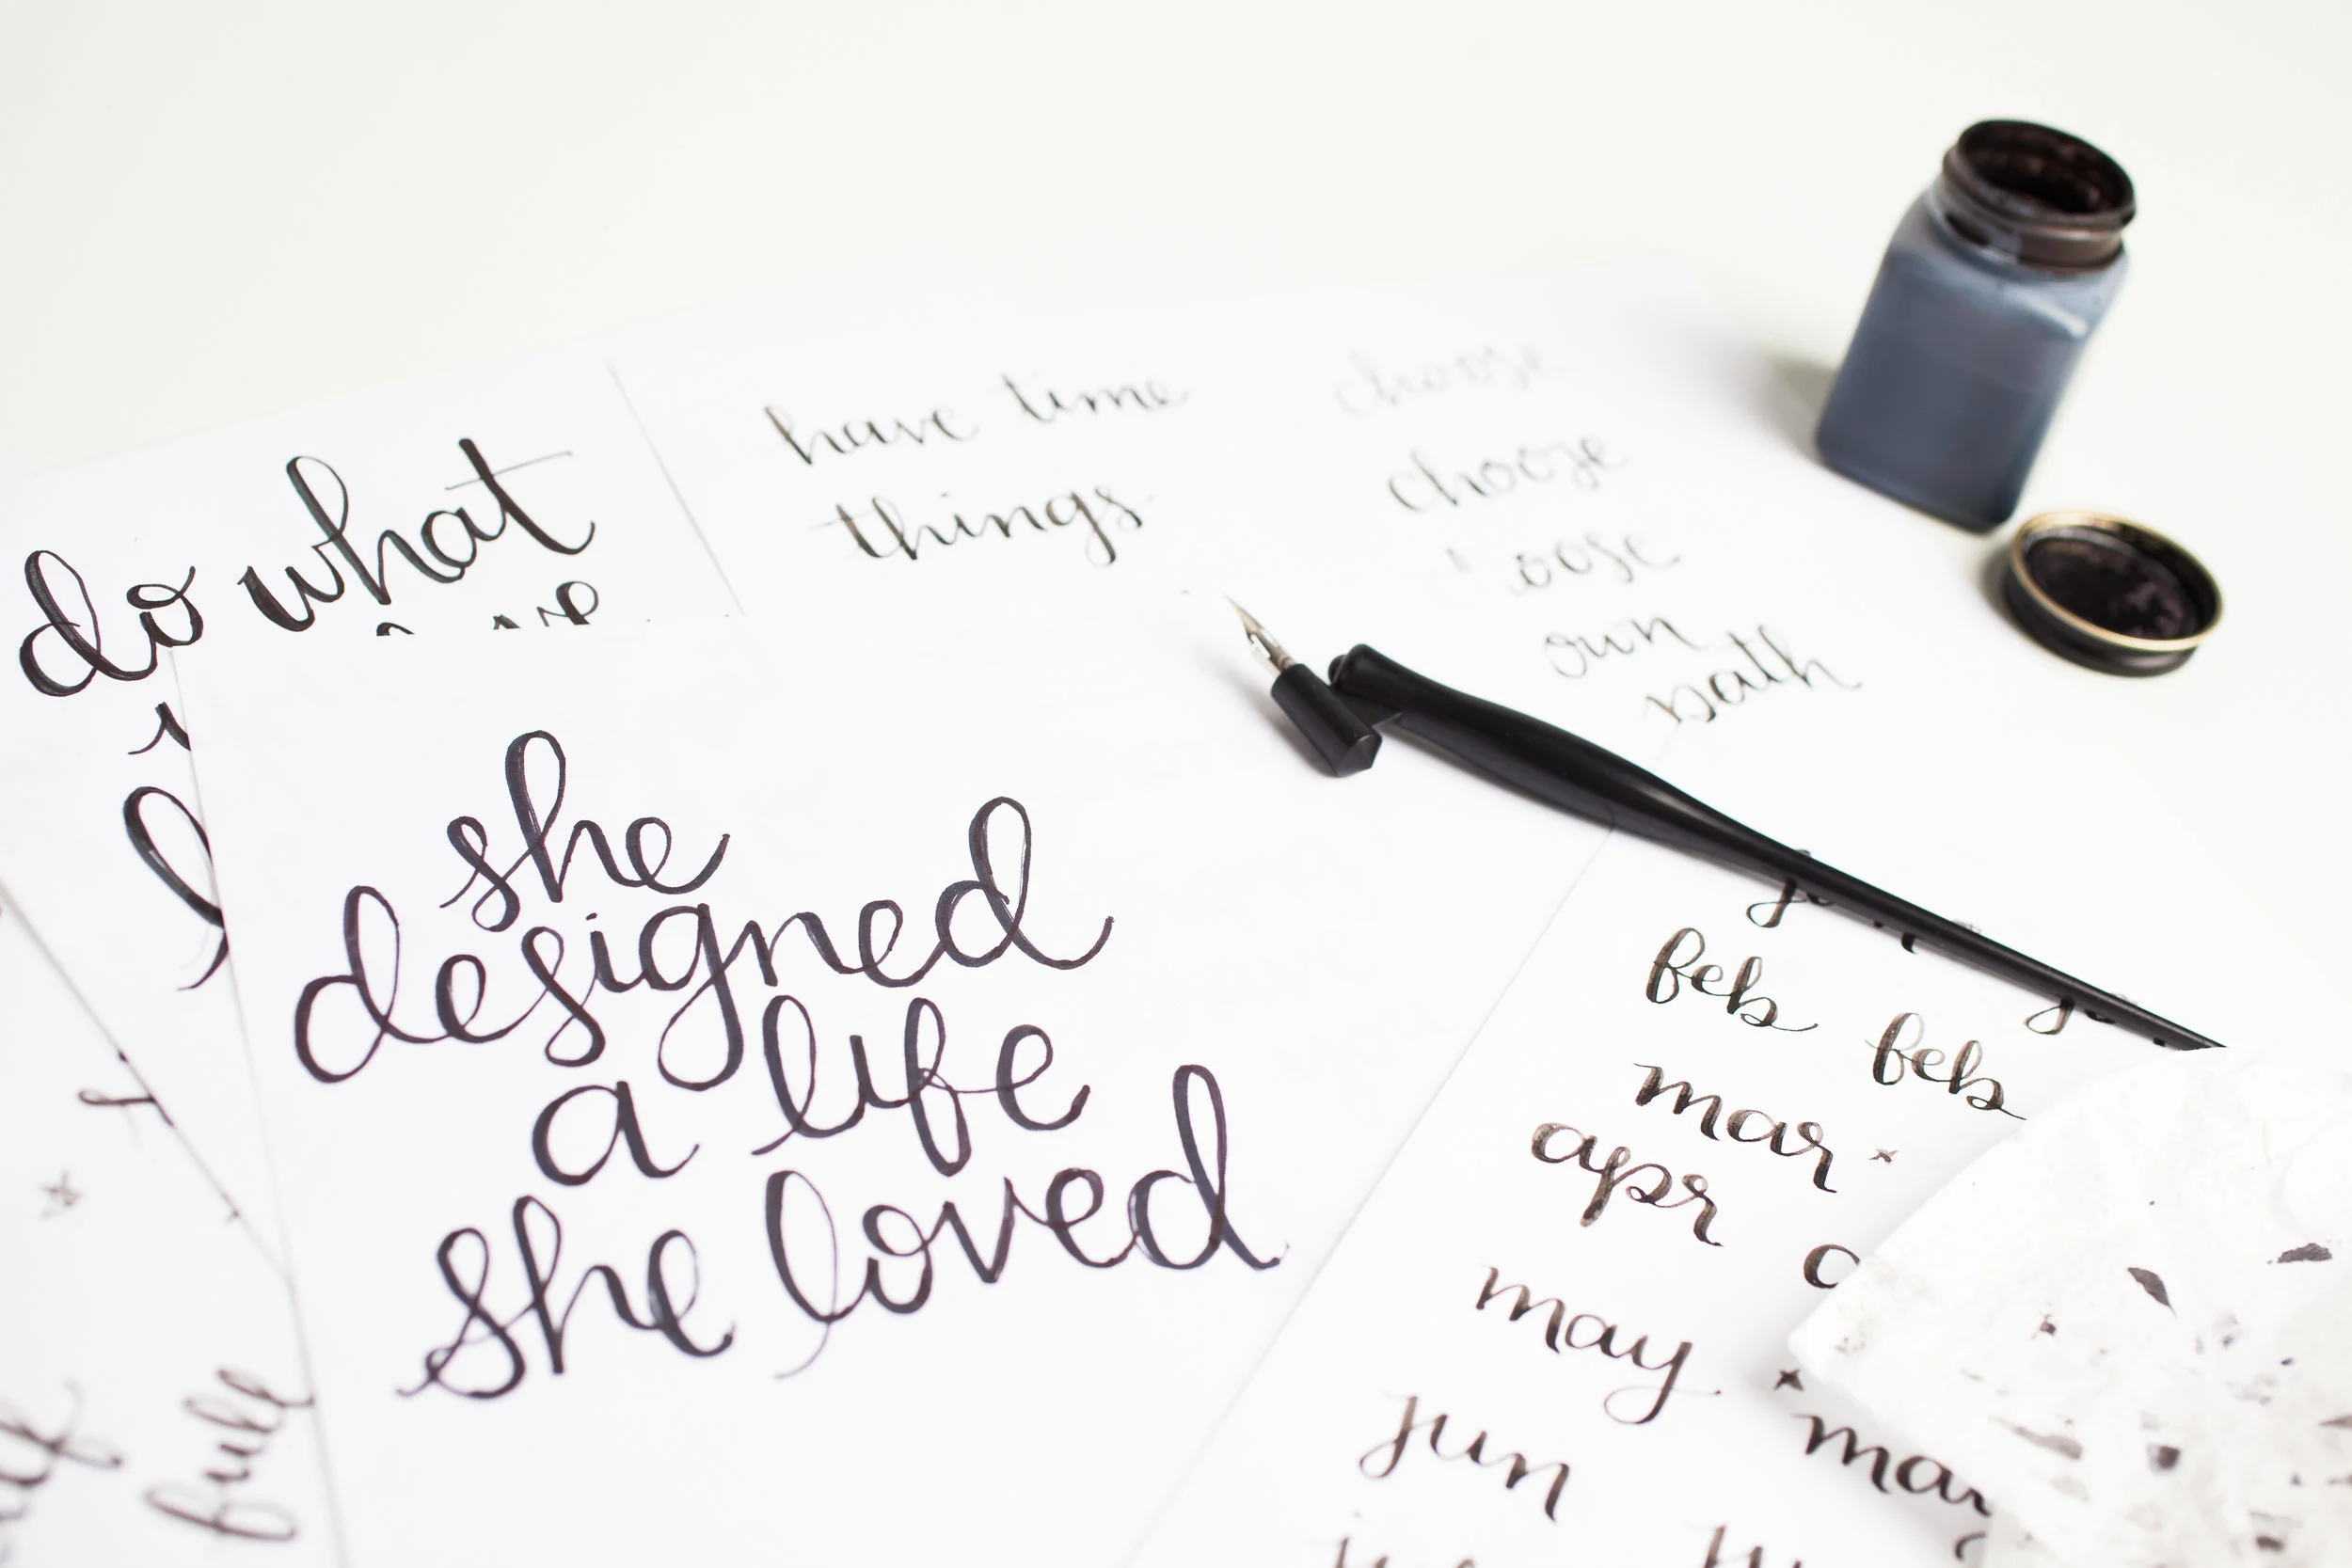 do what
have time
things
choose
choose
own
path
she
designed
a life
she loved
feb feb
mar
apr
may
jun
may
full